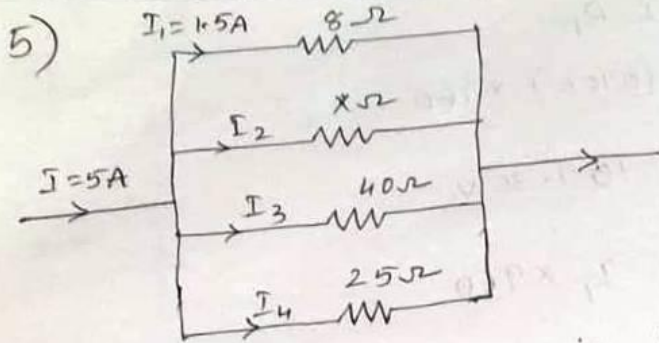 5)
I₁ = 1.5A
8 Ω
I₂
x Ω
I = 5A
I₃
40 Ω
I₄
25 Ω